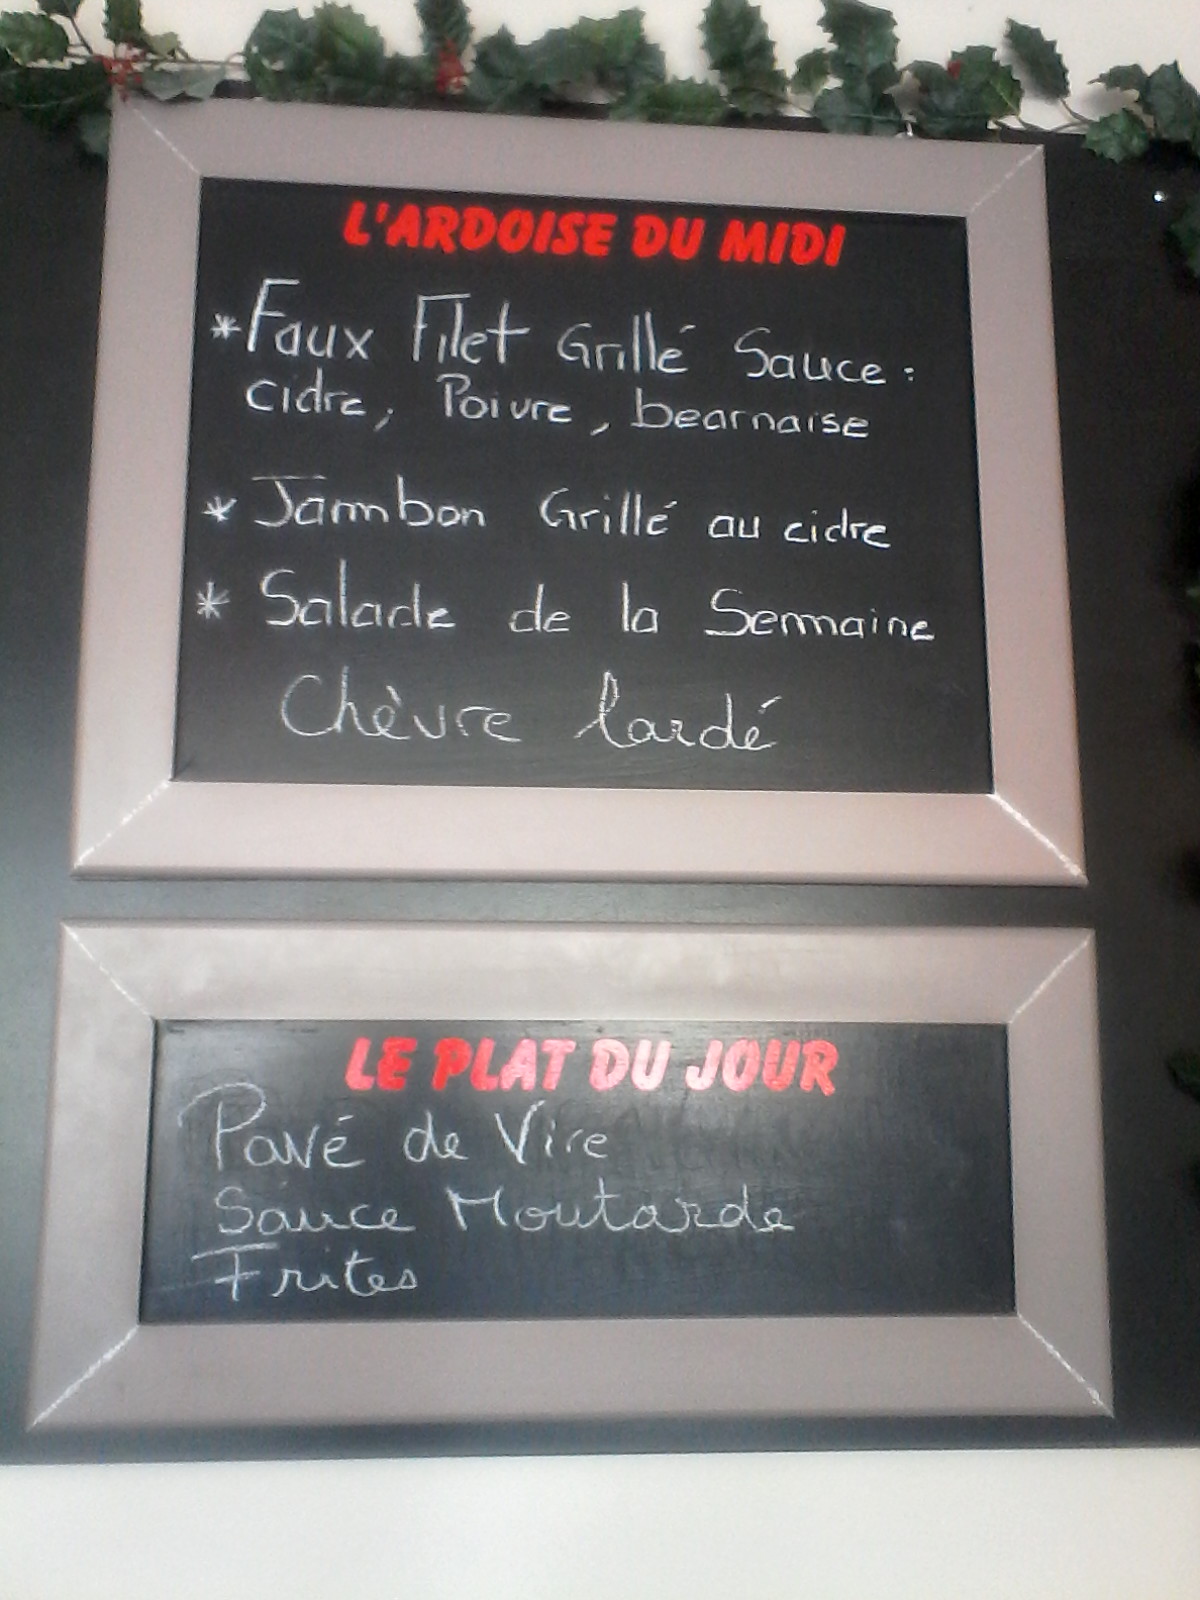 L'ARDOISE DU MIDI
*Faux Filet Grillé Sauce :
cidre, Poivre, bearnaise
* Jambon Grillé au cidre
* Salade de la Semaine
Chèvre lardé
LE PLAT DU JOUR
Pavé de Vire
Sauce Moutarde
Frites